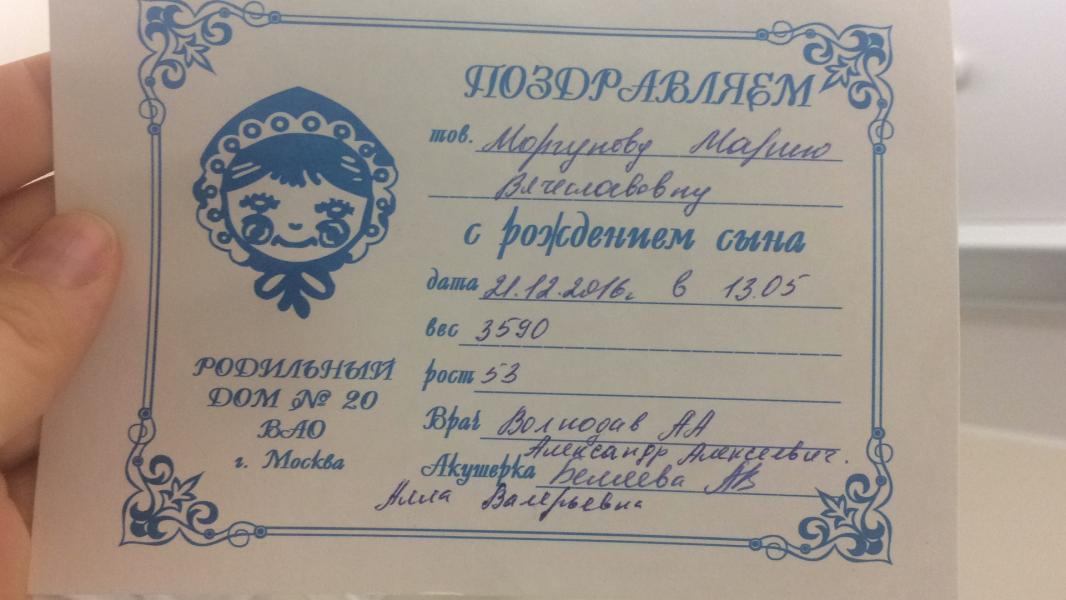 ПОЗДРАВЛЯЕМ
тов. Моргунову Марию
Вячеславовну
с рождением сына
дата 21.12.2016г в 13.05
вес 3590
рост 53
Врач Волкодав АА
Александр Алексеевич.
Акушерка Беляева АВ
Алла Валерьевна
РОДИЛЬНЫЙ
ДОМ № 20
ВАО
г. Москва